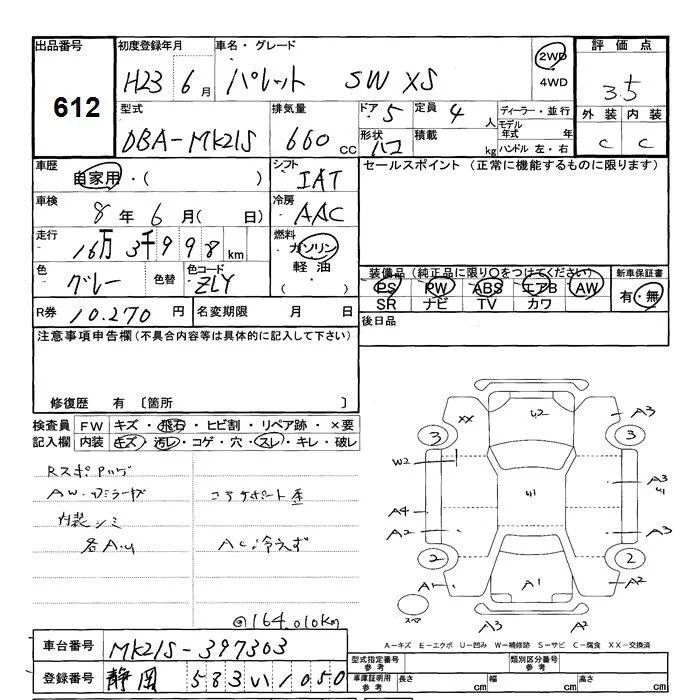 出品番号 初度登録年月 車名・グレード 評価点
612 H23 6月 パレット SW XS 2WD 4WD 3.5
型式 排気量 ドア 5 定員 4人 ディーラー・並行 外装 内装
DBA-MK21S 660cc 形状 ハコ 積載 kg モデル年式 年 ハンドル 左・右 C C
車歴 自家用・( ) シフト IAT セールスポイント (正常に機能するものに限ります)
車検 8年6月( 日) 冷房 AAC
走行 16万3千998km 燃料 ガソリン
軽油
( )
色 グレー 色替 色コード ZLY
装備品(純正品に限り○をつけてください) 新車保証書
PS PW ABS エアB AW 有・無
SR ナビ TV カワ
R券 10.270円 名変期限 月 日 後日品
注意事項申告欄(不具合内容等は具体的に記入して下さい)
修復歴 有 〔箇所 〕
検査員 FW キズ・飛石・ヒビ割・リペア跡・×要
記入欄 内装 キズ・汚レ・コゲ・穴・スレ・キレ・破レ
AW.
コアサポート歪
内装シミ
各A.U
AC冷えず
@164.010km
XX U2 A3
3 3
W2 U1 A3 U1
A4
A2 A3
2 2
A1 A1 A2
スペア A3 A2
A-キズ E-エクボ U-凹み W-補修跡 S-サビ C-腐食 XX-交換済
車台番号 MK21S-397303
登録番号 静岡 583 い 1050
型式指定番号 参考 類別区分番号 参考
車庫証明用 参考 長さ cm 幅 cm 高さ cm